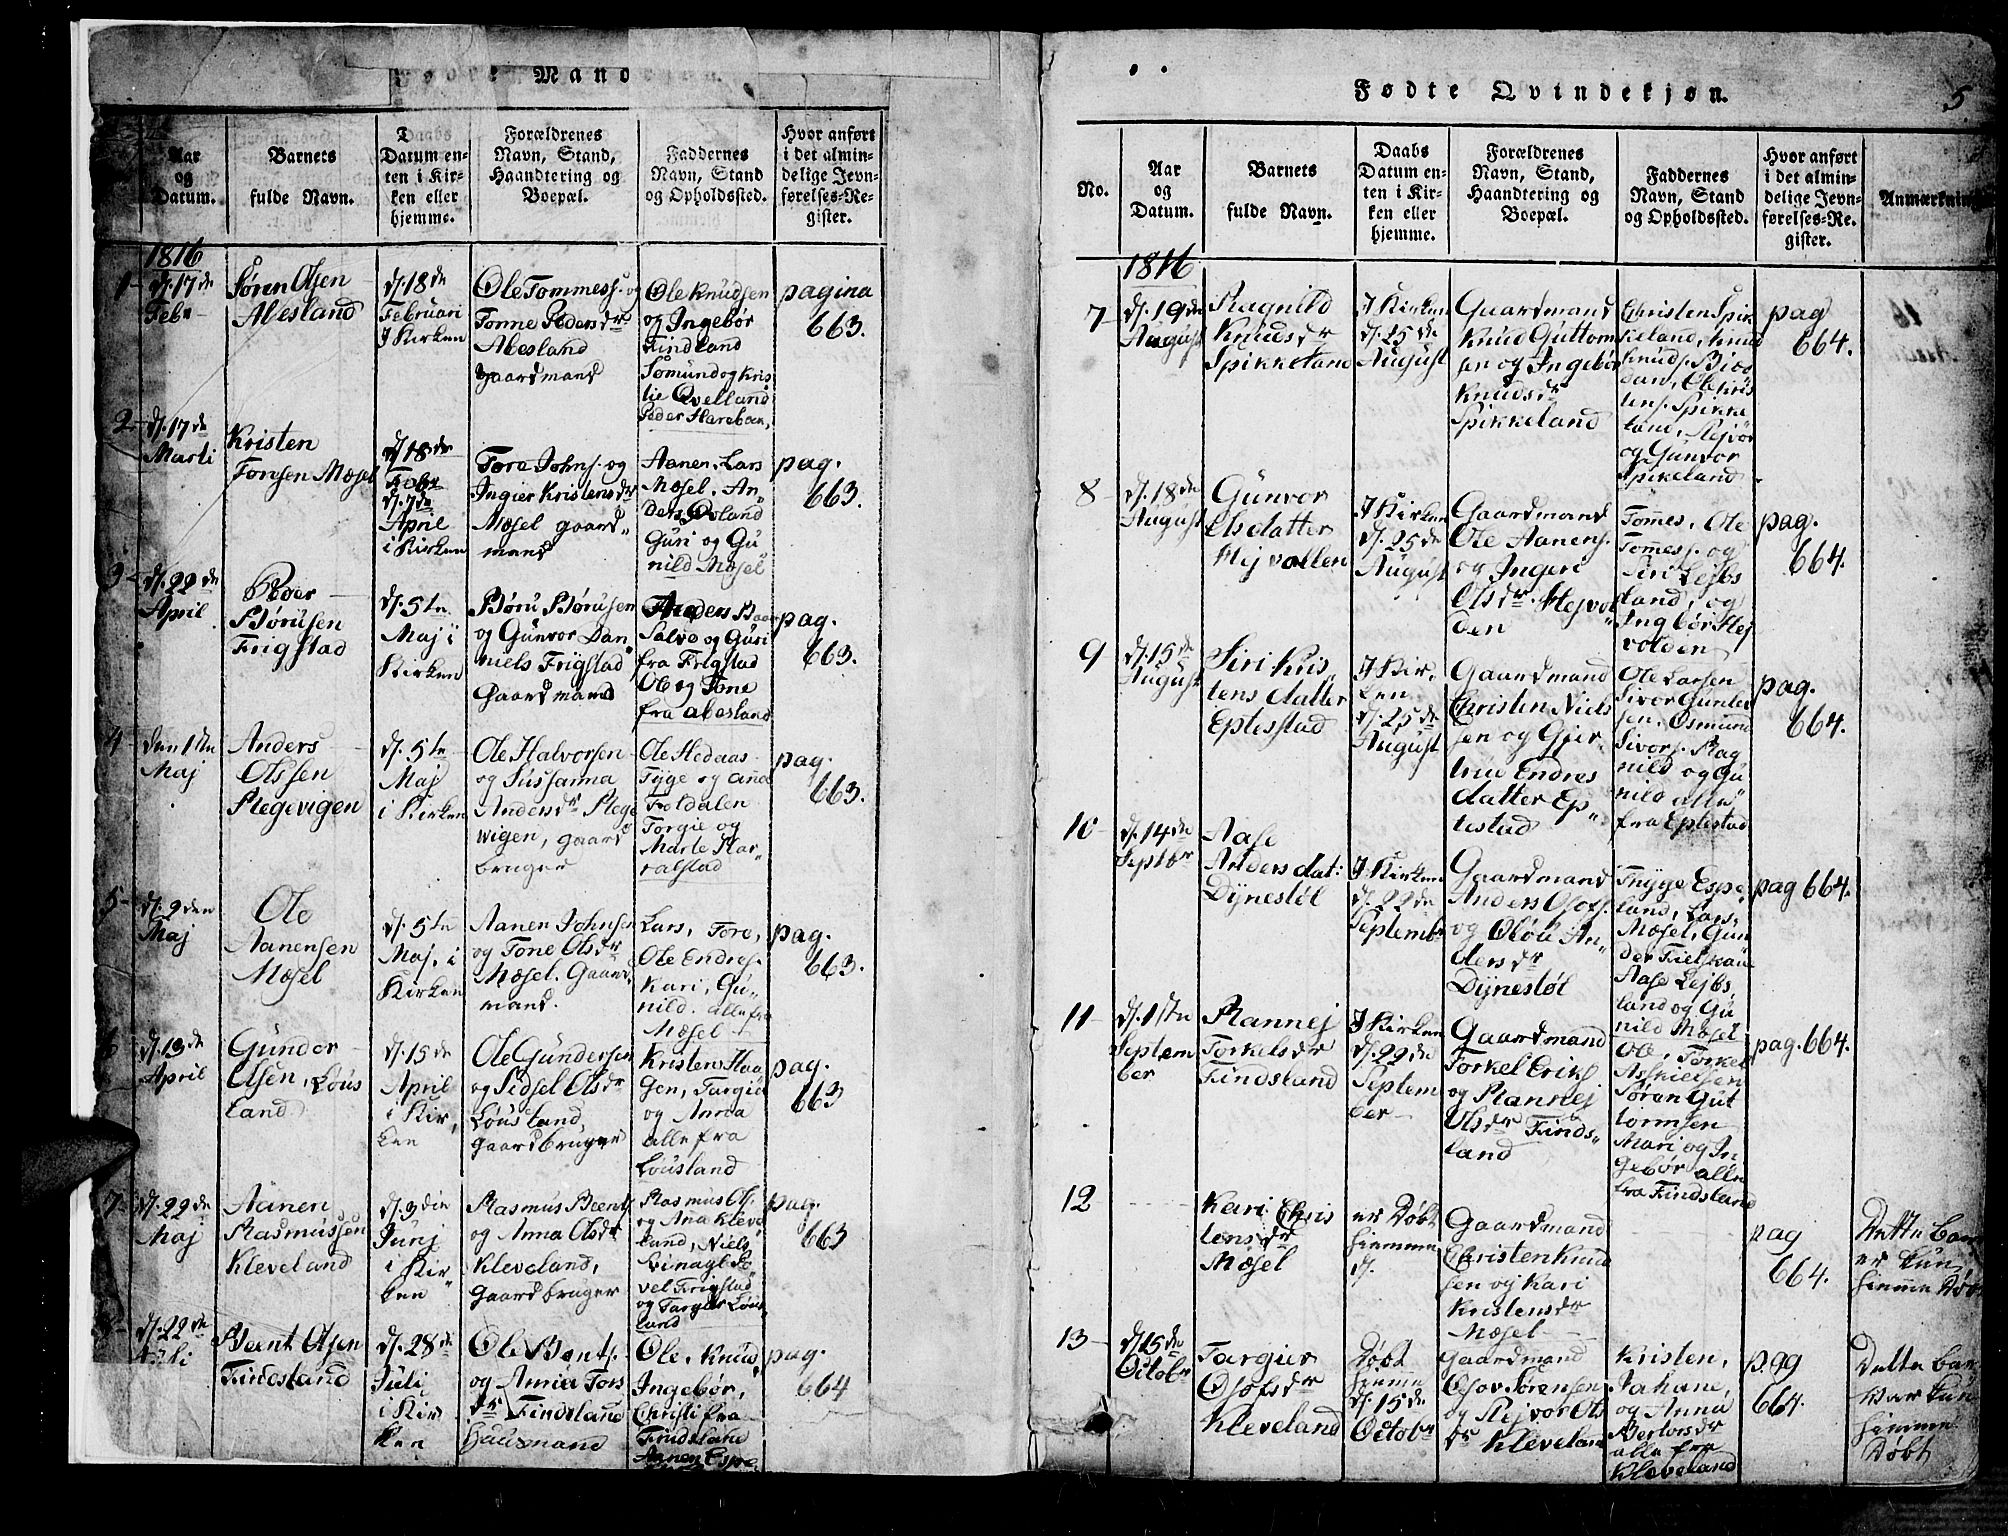 Fødte Mand
Aar og Datum.
Barnets fulde Navn.
Daabs Datum enten i Kirken eller hjemme.
Forældrenes Navn, Stand, Haandtering og Boepæl.
Faddernes Navn, Stand og Opholdssted.
Hvor anført i det almindelige Jevnførelses-Register.
1816
1
d. 17de Febr
Søren Olsen
Abesland
d. 18de
Februari
I Kirken
Ole Tommess. og
Tonne Pedersdr
Abesland
Gaardmand
Ole Knudsen
og Ingebør
Findland
Somund og Kris
tie Qvelland
Peder Hareboen,
pagina
663.
2
d. 17de
Marti
Kristen
Torjsen Mæsel
d. 18de
Febr
d. 7de
April
i Kirken
Tore Johns. og
Ingier Kristensdr
Mæsel gaard"
mand
Aanen, Lars
Mæsel. An"
ders
Guri og Gu
nild Mæsel
pag.
663.
3
d. 22de
April
Roer
Børüsen
Frigstad
d. 5te
Maj i
Kirken
Børü Børüsen
og Günvor Dan"
niels Frigstad
Gaardmand
Anders Baar
Salve og Guri
fra Frigstad
Ole og Tone
fra abesland
pag.
663.
4
den 1ste
Maj
Anders
Olssen
Plegevigen
d. 5te
Maj
i Kirken
Ole Halvorsen
og Sussanna
Andersdr Plege
vigen, gaard
bruger
Ole Hedaas
Tyge og ane
Foldalen
Torgie og
Marte Har"
ralstad
pag.
663.
5
d. 2den
Maj
Ole
Aanensen
Mæsel
d. 5te
Maj. i
Kirken
Aanen Johnsen
og Tone Olsdr
Mæsel. Gaard
mand.
Lars, Tore,
Ole Endres.
Kari, Gu"
nild. alle fra
Mæsel
pag.
663.
6
d. 13de
April
Günder
Olsen, Løus
land
d. 15de
April
i Kir,
ken
Ole Gündersen
og Sidsel Olsdr
Løusland,
gaardbruger
Kristen Haa
gen, Targie
og Anna
alle fra
Løusland
pag.
663
7
d. 22de
Maj
Aanen
Rasmussen
Kleveland
d. 3die
Junj
i Kir
ken
Rasmus Beents
og Anna Olsdr
Kleveland,
Gaardbruger
Rasmus Ols.
og Ana Kleve
land, Niels
vel Frigstad
og Targie Løus
land
pag.
663
8
d. 22de
Juli
Beent Olsen
Findsland
d. 28de
Juli
i Kir
ken
Ole Bents.
og Anna Tors
dr Findsland
Huusmand
Ole, Knud,
Ingebør,
Christi fra
Findsland
Aanen Espe
pag.
664
Fødte Qvindekjøn.
5
No.
Aar og Datum.
Barnets fulde Navn.
Daabs Datum enten i Kirken eller hjemme.
Forældrenes Navn, Stand, Haandtering og Boepæl.
Faddernes Navn, Stand og Opholdssted.
Hvor anført i det almindelige Jevnførelses-Register.
Anmærkning
1816
7
d. 19de
August
Ragnild
Knudsdr
Spikkeland
I Kirken
d. 25de
August
Gaardmand
Knud Guttom
sen og Ingebør
Knudsdr
Spikkeland
Christen Spik
keland, Knud
Knuds. Bios
dan, Ole Kris
tens. Spikke
land, Stejvør
og Günvor
Spikeland
pag
664.
8
d. 18de
August
Günvor
Olsdatter
Stejvollen
I Kirken
d. 25de
August
Gaardmand
Ole Aanens.
og Ingeri
Olsdr. Stejvol"
den
Tomes, Ole
Tomess. og
Siri Lejbs
land, og
Ingbør Stej
volden
pag.
664.
9
d. 15de
August
Siri Kris
tensdatter
Eptesstad
I Kir,
ken
d. 25de
August
Gaardmand
Christen Niels
sen og Gjer"
true Endres
datter Ep"
testad
Ole Larsen
Sivor Günter
sen, Osmund
Sivors. Rag
nild og Gu
nild alle
fra Eptestad
pag.
664.
10
d. 14de
Septbr
Aase
Andersdat:
Dynestøl
I Kirken
d. 22de
Septembr
Gaardmand
Anders Osofs.
og Oløu An"
dersdr
Dynestøl
Trygge Espe
land, Lars,
Mæsel, Gun
der Fielskaar
Aase Lejbs
land og Gu
nild Mæsel
pag 664.
11
d. 1ste
Septem
ber
Rannej
Torkelsdr
Findsland
I Kirken
d. 22de
Septem
ber
Gaardmand
Torkel Eriks
og Rannej
Olsdr Finds"
land
Ole, Torkel
Askielsen
Søren Gut
tormsen
Mari og In
gebør alle
fra Findsland
pag. 664.
12
Kari Chris
tensdr
Mæsel
er Døbt
hiemme
d.
Gaardmand
Christen Knud
sen og Kari
Kristensdr
Mæsel
pag
664.
Dette barn
er kun
hieme Døbt
13
d. 15de
Octobr
Targier
Osofsdr
Kleveland
Døbt
hieme
d. 15de
Octobr
Gaardmand
Osov Sørensen
og Stejvor Ols
dr Kleveland
Kristen,
Jahane,
og Anna
Bertorsdr
alle fra
Kleveland
pag
664.
Dette bar
var kun
hiemme
Døbt